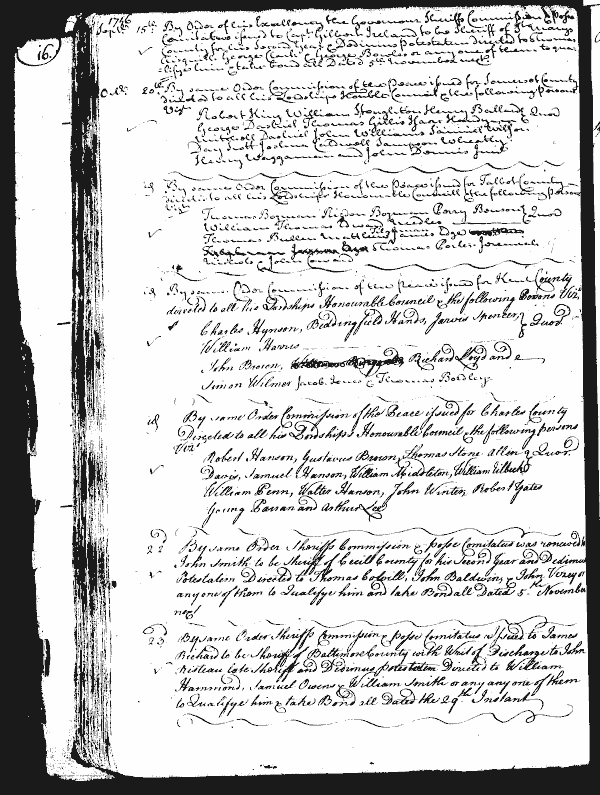 16.
1746
Septr. 15th. By Order of his Excellency the Governour Sheriffs Commission & Posse
Comitatus issued to Capt. Gilbert Ireland to be Sheriff of
County for his Second year & Dedimus Potestatem directed to
George Clarke or any one of them to qua-
lifye him & take Bond all Dated 5th November next
Octr. 20th By same Order Commission of the Peace issued for Somerset County
directed to all his Lordships Honble Council & the following persons
Vizt
Robert King William Stoughton Henry Ballard Quor
George Dashiel Thomas Gillis Isaac Handy
Mitchell Dashiel John Williams Samuel Wilson
Day Scott Joshua Caldwell Sampson Wheatly
Henry Waggaman and John Dennis Junr
By same Order Commission of the Peace issued for Talbot County
directed to all his Lordships Honourable Council & the following persons
Vizt
Thomas Bozman Risdon Bozman Perry Benson Quod
William Thomas
Thomas Bullen James Dge
Thomas Porter Jeremiah
Nichols & John Coward
By same Order Commission of the Peace issued for Kent County
directed to all his Lordships Honourable Council & the following Persons Vizt.
Charles Hynson, Beddingfield Hands, Jarvis Spencer, Quod.
William Harris
John Brown, Richard Lloyd and
Simon Wilmer Jacob Jones & Thomas Bordley.
By same Order Commission of the Peace issued for Charles County
Directed to all his Lordships Honourable Council & the following persons
Vizt.
Robert Hanson, Gustavus Brown, Thomas Stone Allen Quor.
Davis, Samuel Hanson, William Middleton, William Eilbeck
William Penn, Walter Hanson, John Winter, Robert Yates
Young Parran and Arthur Lee
22 By same Order Sheriffs Commission & posse Comitatus was renewed to
John Smith to be Sheriff of Cecill County for his Second Year and Dedimus
Potestatem Directed to Thomas Colvill, John Baldwin, & John Veazey or
any one of them to Qualifye him and take Bond all Dated 5th November
next
23 By same Order Sheriffs Commission & posse Comitatus issued to James
Richard to be Sheriff of Baltimore County with Writ of Discharge to John
Risteau late Sheriff and Dedimus potestatem Directed to William
Hammond, Samuel Owens & William Smith or any any one of them
to Qualifye him & take Bond all Dated the 29th Instant